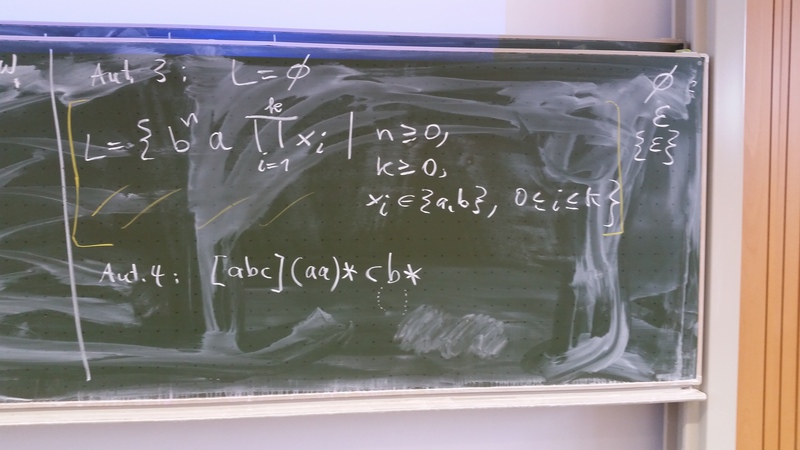 Aut. 3: L = ∅
L = { bⁿ a ∏ᵢ₌₁ᵏ xᵢ | n ≥ 0,
k ≥ 0,
xᵢ ∈ {a,b}, 0 ≤ i ≤ k }
Aut. 4: [abc](aa)*cb*
∅
ε
{ε}